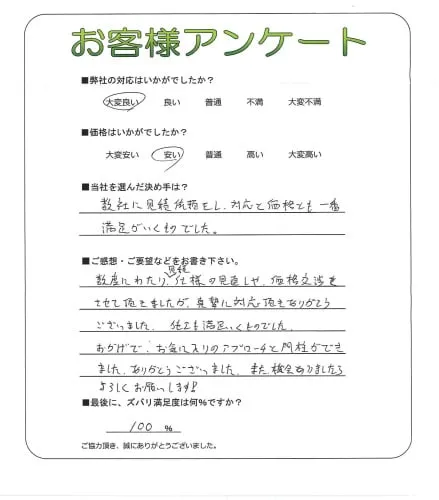 お客様アンケート
■弊社の対応はいかがでしたか?
大変良い 良い 普通 不満 大変不満
■価格はいかがでしたか?
大変安い 安い 普通 高い 大変高い
■当社を選んだ決め手は?
数社に見積依頼をし、対応と価格とも一番
満足がいくものでした。
■ご感想・ご要望などをお書き下さい。
見積
数度にわたり、仕様の見直しや、価格交渉を
させて頂きましたが、真摯に対応頂きありがとう
ございました。仕上も満足いくものでした。
おかげで、お気に入りのアプローチと門柱ができ
ました。ありがとうございました。また、機会ありましたら
よろしくお願いします!
■最後に、ズバリ満足度は何%ですか?
100 %
ご協力頂き、誠にありがとうございました。